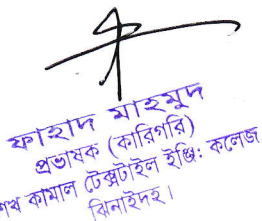 ফাহাদ মাহমুদ
প্রভাষক (কারিগরি)
শেখ কামাল টেক্সটাইল ইঞ্জি: কলেজ
ঝিনাইদহ।